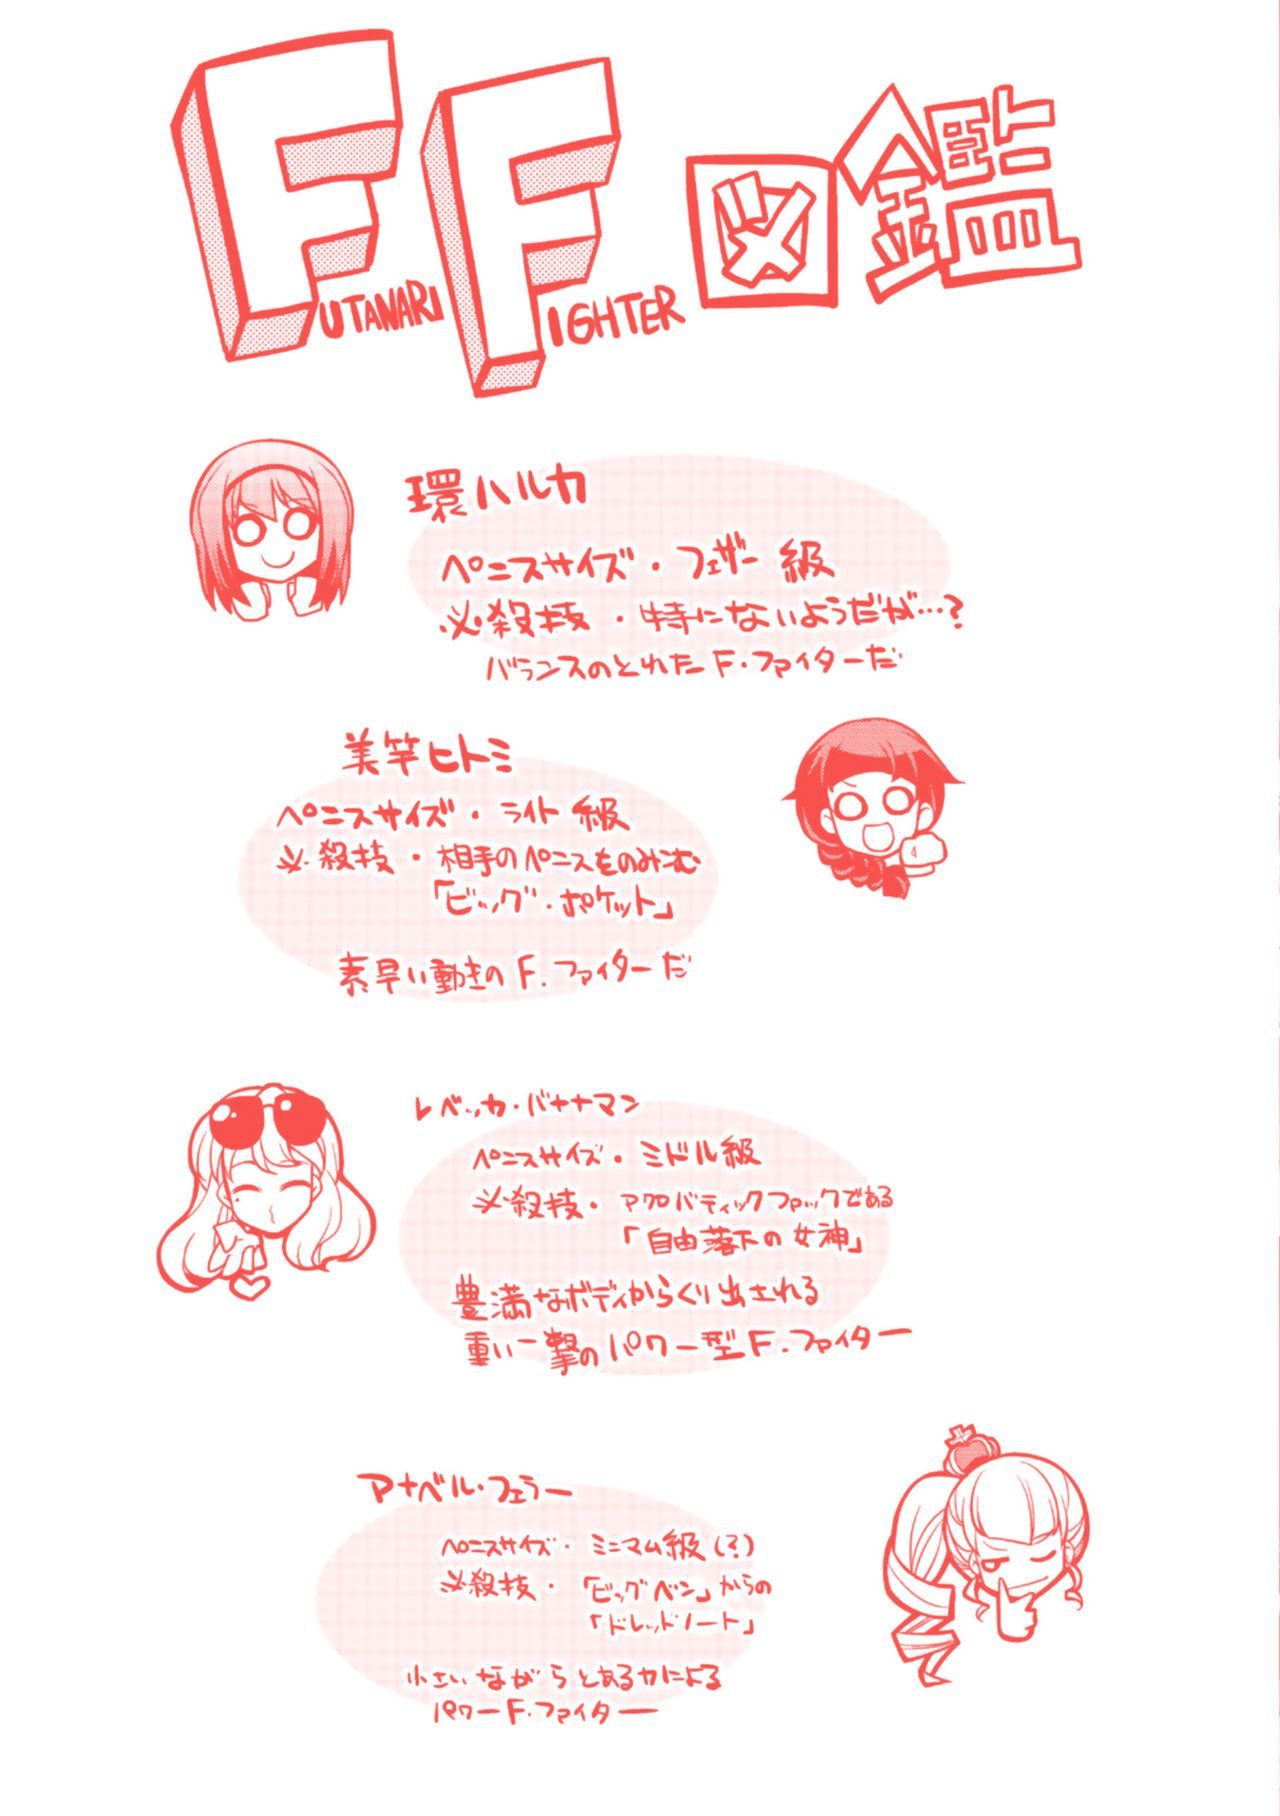 FUTANARI FIGHTER 図鑑
環ハルカ
ペニスサイズ・フェザー級
必殺技・特にないようだが…？
バランスのとれたF.ファイターだ
美竿ヒトミ
ペニスサイズ・ライト級
必殺技・相手のペニスをのみこむ
「ビッグ・ポケット」
素早い動きのF.ファイターだ
レベッカ・バナナマン
ペニスサイズ・ミドル級
必殺技・アクロバティックファックである
「自由落下の女神」
豊満なボディからくり出される
重い一撃のパワー型F.ファイター
アナベル・フェラー
ペニスサイズ・ミニマム級(？)
必殺技・「ビッグベン」からの
「ドレッドノート」
小さいながらとある力による
パワーF.ファイター